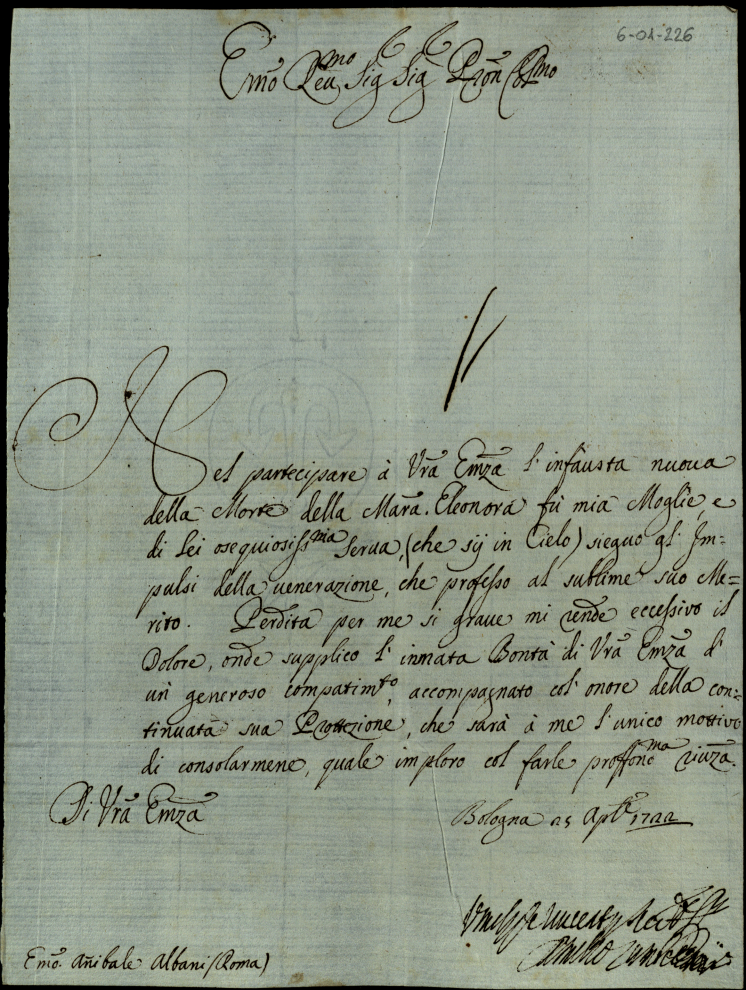 6-01-226
Emo Reumo Sig Sig Pron Colmo
Nel partecipare à Vrã Emza l'infausta nuoua
della Morte della Marã. Eleonora fù mia Moglie, e
di Lei osequiosissma Serua, (che sij in Cielo) sieguo gl' Im=
pulsi della uenerazione, che professo al sublime suo Me=
rito. Perdita per me si graue mi rende eccessivo il
Dolore, onde supplico l' innata Bontà di Vrã Emza d'
un generoso compatimto, accompagnato col' onore della con=
tinuata sua Protezione, che sarà à me l'unico mottivo
di consolarmene, quale imploro col farle proffonma riuza.
Di Vrã Emza
Bologna 25 Aple 1722
Emo. Anibale Albani (Roma)